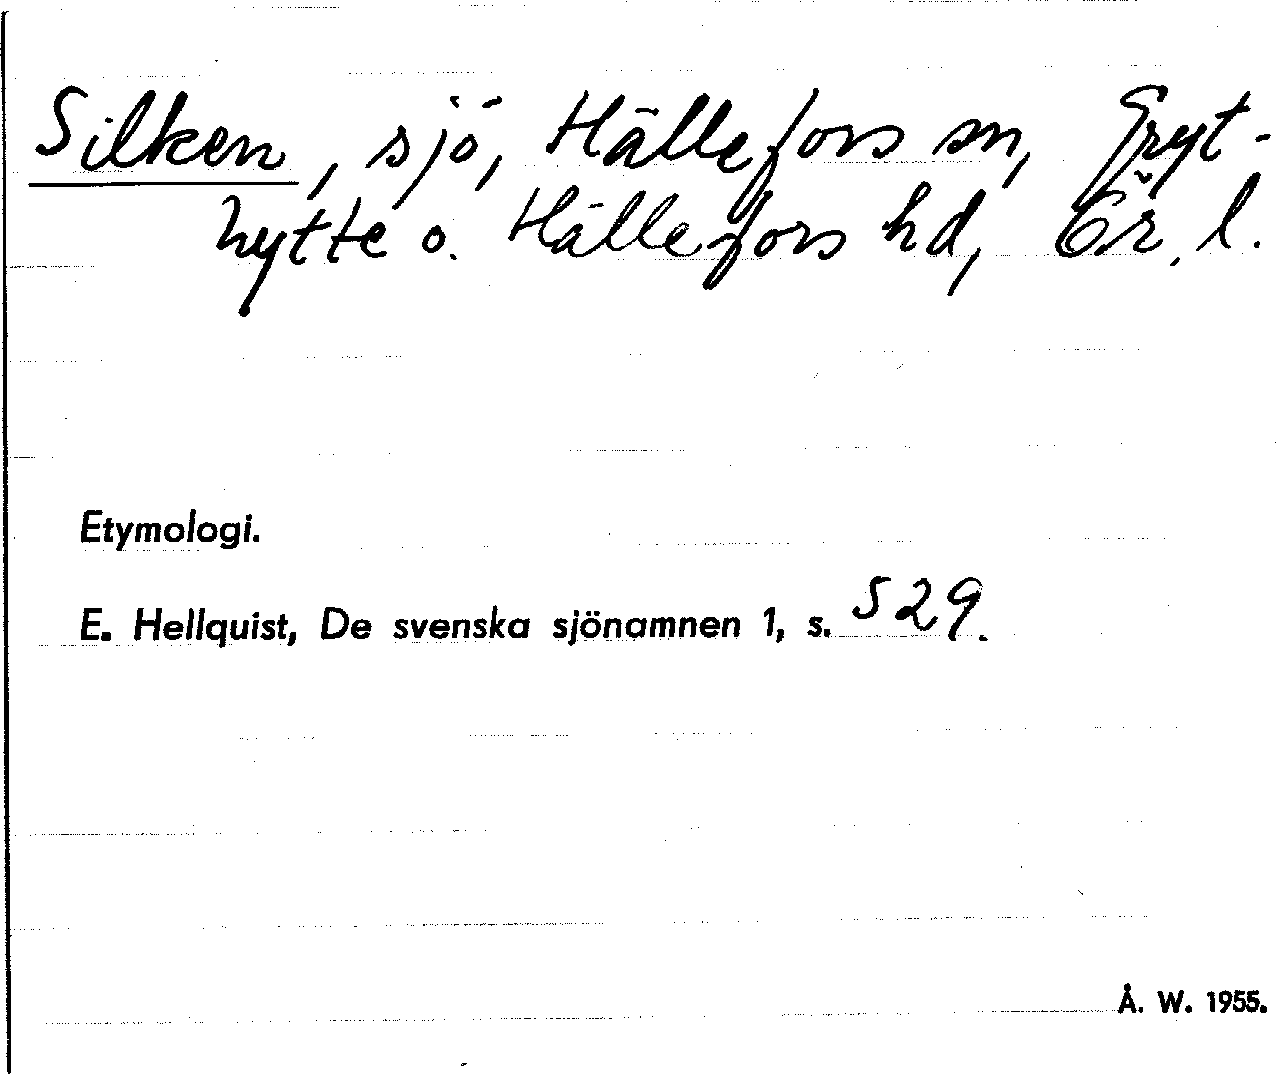 Silken, sjö, Hällefors sn, Gryt-
hytte o. Hällefors hd, Ör. l.
Etymologi.
E. Hellquist, De svenska sjönamnen 1, s. 529.
Å. W. 1955.